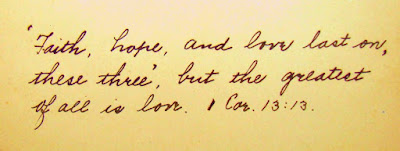 "Faith, hope, and love last on,
these three", but the greatest
of all is love. 1 Cor. 13:13.